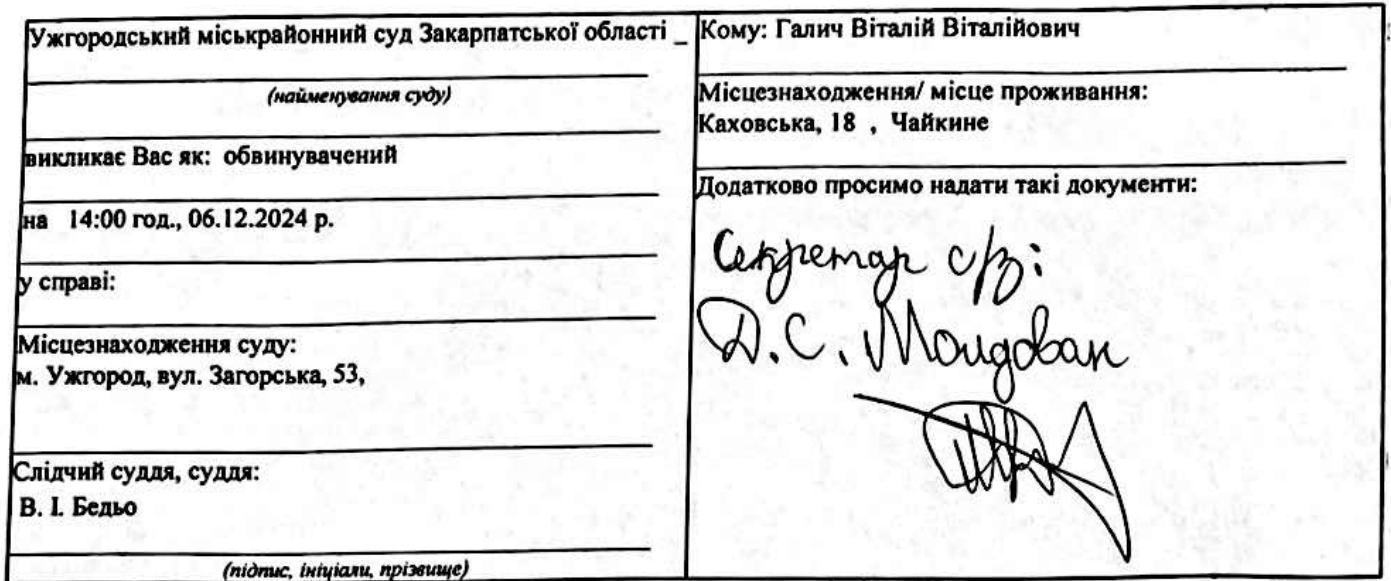 Ужгородський міськрайонний суд Закарпатської області _
(найменування суду)
викликає Вас як: обвинувачений
на 14:00 год., 06.12.2024 р.
у справі:
Місцезнаходження суду:
м. Ужгород, вул. Загорська, 53,
Слідчий суддя, суддя:
В. І. Бедьо
(підпис, ініціали, прізвище)
Кому: Галич Віталій Віталійович
Місцезнаходження/ місце проживання:
Каховська, 18 , Чайкине
Додатково просимо надати такі документи:
Секретар с/з:
Д.С. Молдован